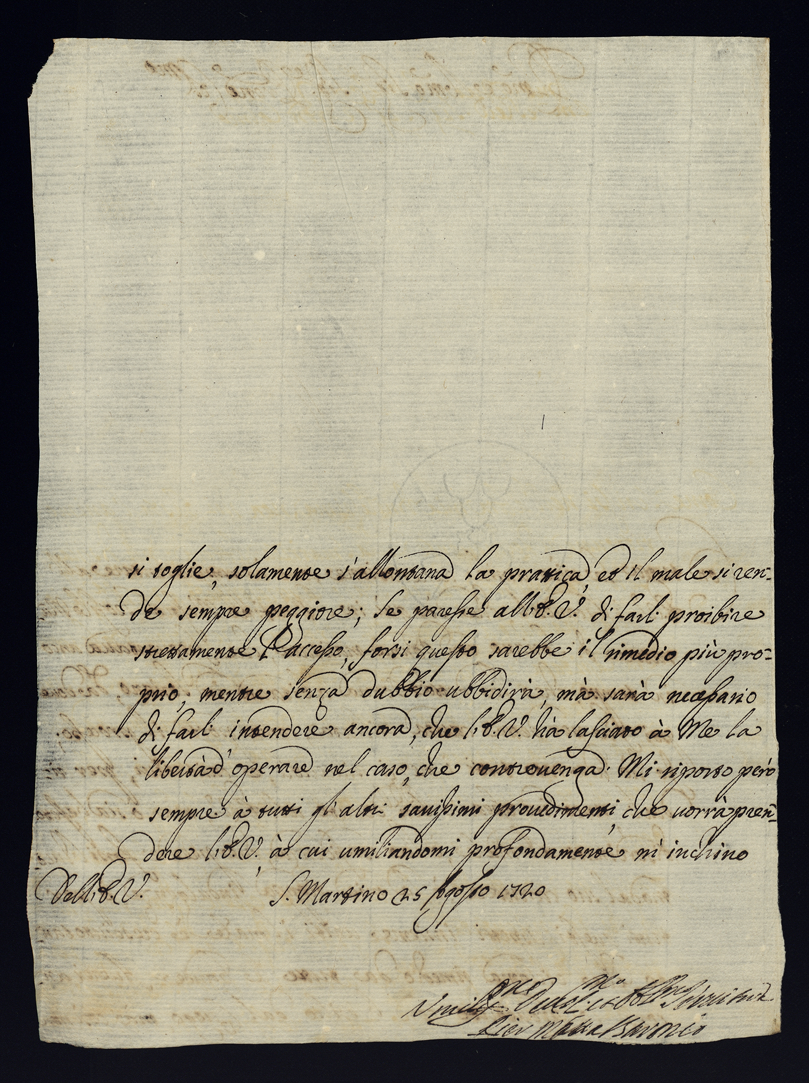 si toglie, solamente s'allontana la prattica, et il male si ren=
de sempre peggiore; Se paresse all'E.V. di farli proibire
strettamente l'accesso, forsi questo sarebbe il rimedio più pro=
prio, mentre senza dubbio ubbidirà, mà sarà necessario
di farli intendere ancora, che l'E.V. hà lasciato à Me la
libertà d'operare nel caso, che contrevenga. Mi riporto però
sempre à tutti gl'altri savissimi provedimenti, che vorrà pren=
dere l'E.V. à cui umiliandomi profondamente m'inchino
Dell'E.V. S. Martino 25 Agosto 1720
Servitore
Pier